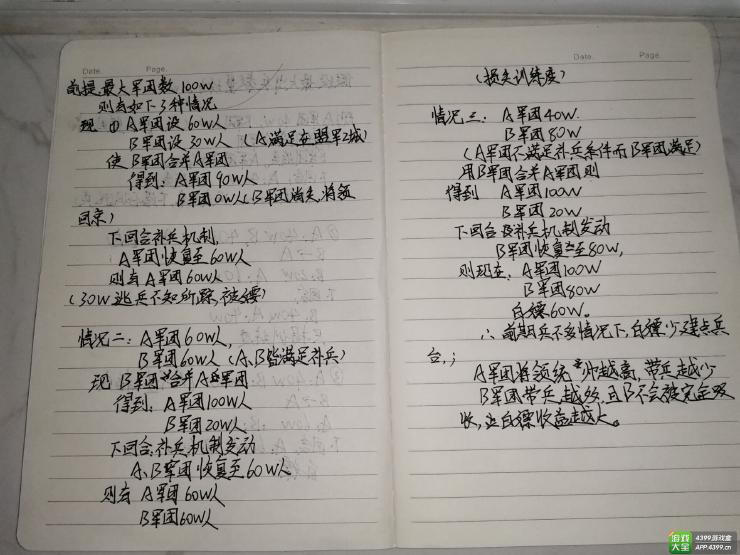 Date. Page.
前提,最大军团数100W
则有如下3种情况
现 ① A军团设60W人
B军团设30W人 (A满足在盟军2城)
使 B军团合并A军团
得到: A军团90W人
B军团0W人(B军团消失,将领
回京)
下回合补兵机制,
A军团恢复至60W人
则有 A军团60W人
(30W逃兵不知所踪,被嫖)
情况二: A军团60W人,
B军团60W人 (A、B皆满足补兵)
现 B军团合并A军团
得到: A军团100W人
B军团20W人
下回合,补兵机制发动
A、B军团恢复至60W人
则有 A军团60W人
B军团60W人
Date. Page.
(损失训练度)
情况三: A军团40W.
B军团80W
(A军团不满足补兵条件而B军团满足)
用B军团合并A军团则
得到 A军团100W
B军团20W
下回合补兵机制发动
B军团恢复至80W,
则现在: A军团100W
B军团80W
白嫖60W。
∴前期兵不多情况下,白嫖,少建点兵
台,;
A军团将领统帅越高,带兵越少
B军团带兵越多,且B不会被完全吸
收,这白嫖收益越大。
游戏大全
4399游戏盒
APP.4399.cn